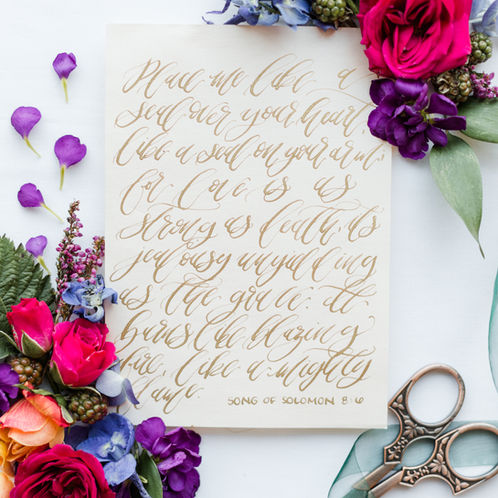 Place me like a
seal over your heart,
like a seal on your arm;
for love is as
strong as death, its
jealousy unyielding
as the grave. It
burns like blazing
fire, like a mighty
flame.
SONG OF SOLOMON 8:6